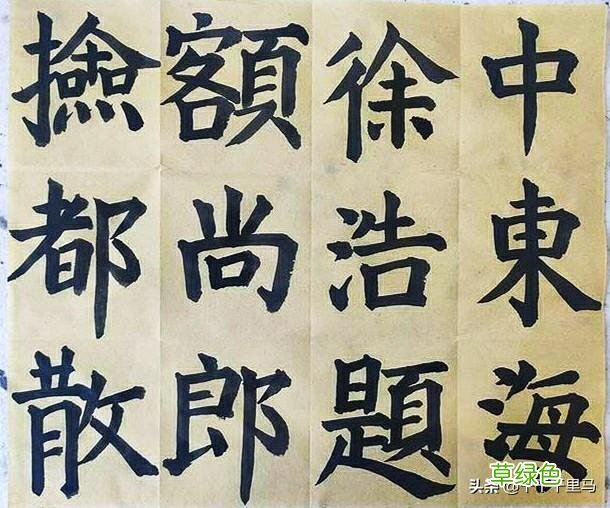 中東海
徐浩題
額尚郎
撿都散
草绿色
头条
千里马